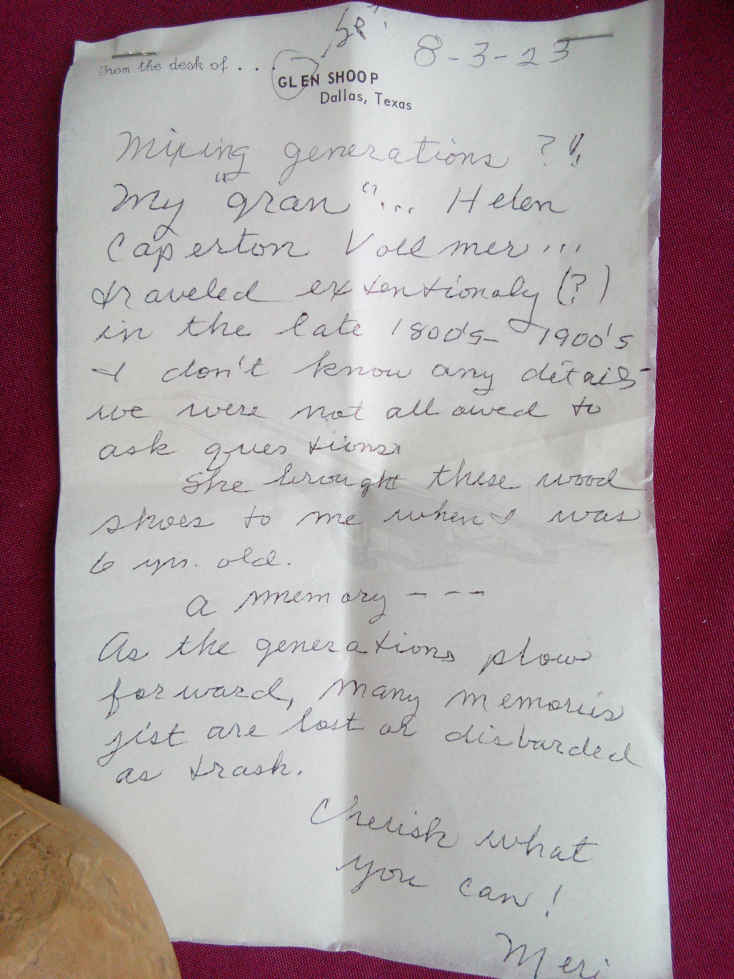 Sr.
8-3-23
From the desk of . . .
GLEN SHOOP
Dallas, Texas
Mixing generations ?!
My "gran"... Helen
Caperton Vollmer...
traveled extentionaly (?)
in the late 1800's - 1900's
I don't know any details -
we were not allowed to
ask questions
She brought these wood
shoes to me when I was
6 yrs. old.
a memory - - -
As the generations plow
forward, many memories
jist are lost or disbarded
as trash.
Cherish what
you can!
Meri